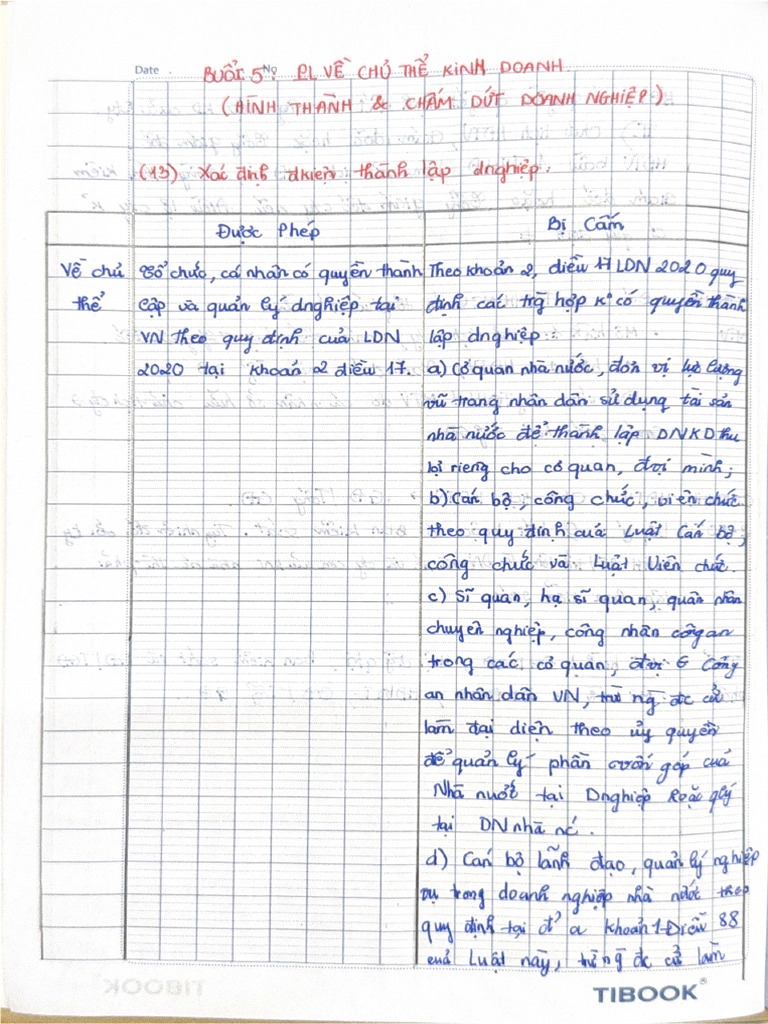 Date . No
BUỔI 5 : PL VỀ CHỦ THỂ KINH DOANH.
(HÌNH THÀNH & CHẤM DỨT DOANH NGHIỆP)
(13) Xác định đkiện thành lập dnghiệp.
Được Phép
Bị Cấm
Về chủ thể
Tổ chức, cá nhân có quyền thành
lập và quản lý dnghiệp tại
VN theo quy định của LDN
2020 tại khoản 2 điều 17.
Theo khoản 2, điều 17 LDN 2020 quy
định các trg hợp k° có quyền thành
lập dnghiệp :
a) Cơ quan nhà nước, đơn vị lực lượng
vũ trang nhân dân sử dụng tài sản
nhà nước để thành lập DNKD thu
lợi riêng cho cơ quan, đơn vị mình;
b) Cán bộ, công chức, viên chức
theo quy định của Luật Cán bộ,
công chức và Luật Viên chức.
c) Sĩ quan, hạ sĩ quan, quân nhân
chuyên nghiệp, công nhân công an
trong các cơ quan, đơn vị Công
an nhân dân VN, trừ ng đc cử
làm đại diện theo ủy quyền
để quản lý phần vốn góp của
Nhà nước tại Dnghiệp hoặc qlý
tại DN nhà nc.
d) Cán bộ lãnh đạo, quản lý nghiệp
vụ trong doanh nghiệp nhà nước theo
quy định tại đ' a khoản 1 Điều 88
của Luật này, trừ ng đc cử làm
TIBOOK